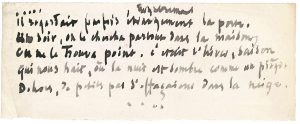 Énigmatiquement
Il regardait parfois étrangement la porte.
Un soir, on le chercha partout dans la maison,
On ne le trouva point. C'était l'hiver, saison
qui nous hait, où la nuit est sombre comme un piège.
Dehors, des petits pas s'effaçaient dans la neige.